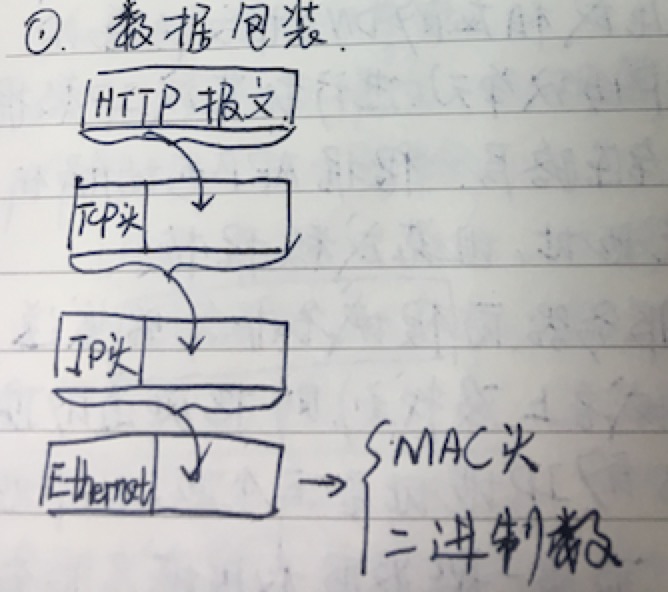 ①. 数据包装.
HTTP 报文.
TCP头
IP头
Ethernet
MAC头
二进制数